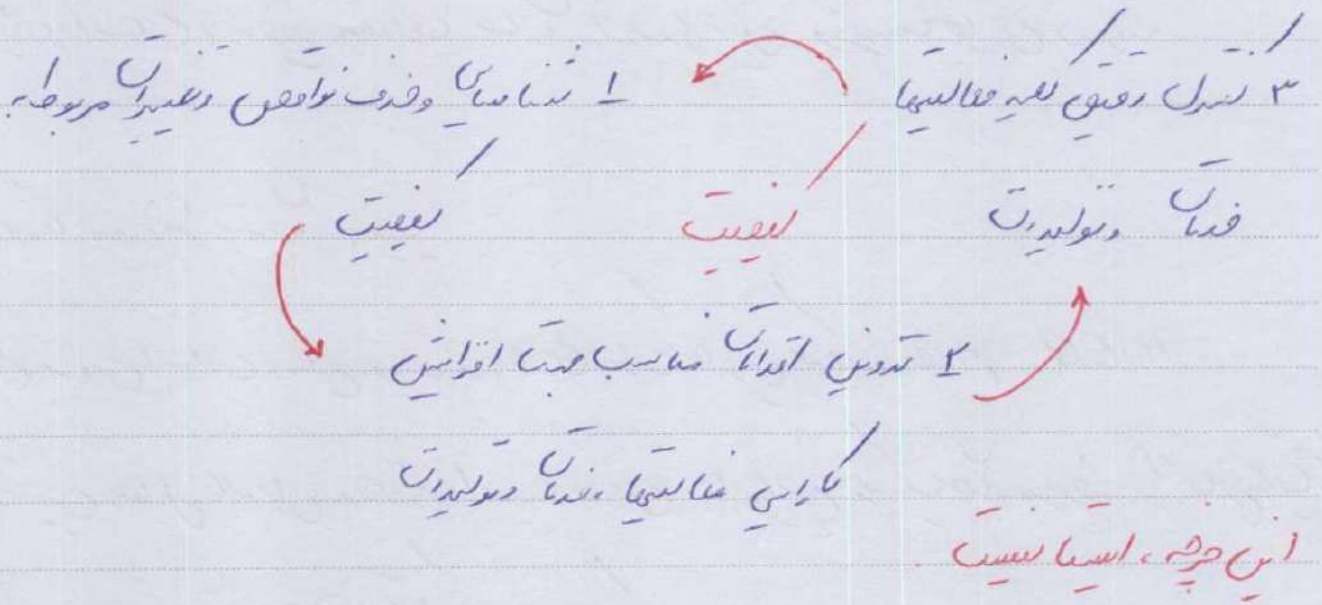 ۳ کنترل دقیق کلیه فعالیتها
۱ شناسایی و حذف نواقص و تغییرات مربوطه.
خدمات و تولیدات
کیفیت
کیفیت
۲ تدوین اقدامات مناسب جهت افزایش
کارایی فعالیتها، خدمات و تولیدات
این چرخه، ایستا نیست.